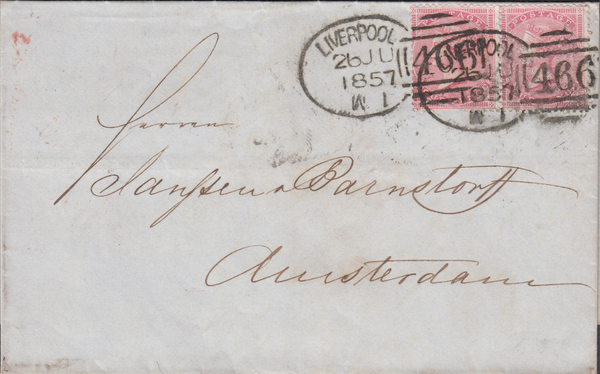 LIVERPOOL
26 JU
1857
W 1
466
LIVERPOOL
26 JU
1857
W 1
466
POSTAGE
Herren
Janssen & Barnstorff
Amsterdam